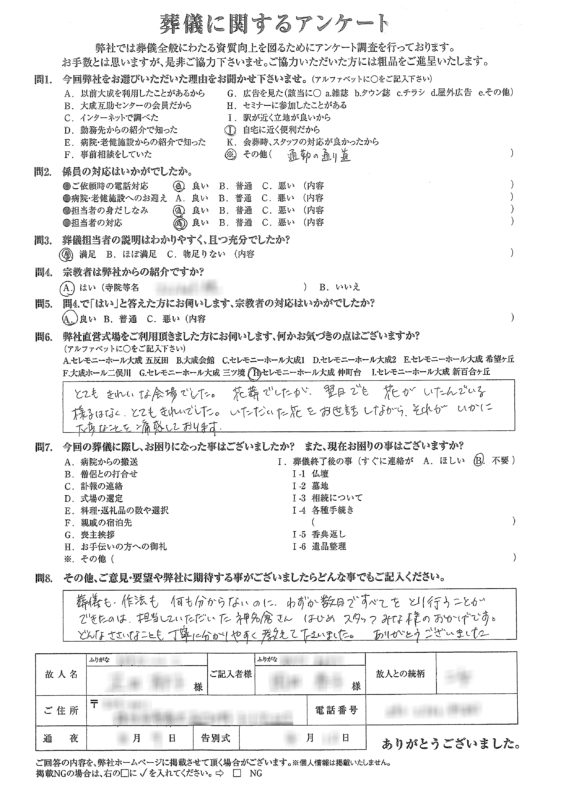 葬儀に関するアンケート
弊社では葬儀全般にわたる資質向上を図るためにアンケート調査を行っております。
お手数とは思いますが、是非ご協力下さいませ。ご協力いただいた方には粗品をご進呈いたします。
問1. 今回弊社をお選びいただいた理由をお聞かせ下さいませ。(アルファベットに○をご記入下さい)
A. 以前大成を利用したことがあるから G. 広告を見た(該当に○ a.雑誌 b.タウン誌 c.チラシ d.屋外広告 e.その他)
B. 大成互助センターの会員だから H. セミナーに参加したことがある
C. インターネットで調べた I. 駅が近く立地が良いから
D. 勤務先からの紹介で知った J. 自宅に近く便利だから
E. 病院・老健施設からの紹介で知った K. 会葬時、スタッフの対応が良かったから
F. 事前相談をしていた ※. その他( 通勤の通り道 )
問2. 係員の対応はいかがでしたか。
●ご依頼時の電話対応 A. 良い B. 普通 C. 悪い (内容 )
●病院・老健施設へのお迎え A. 良い B. 普通 C. 悪い (内容 )
●担当者の身だしなみ A. 良い B. 普通 C. 悪い (内容 )
●担当者の対応 A. 良い B. 普通 C. 悪い (内容 )
問3. 葬儀担当者の説明はわかりやすく、且つ充分でしたか?
A. 満足 B. ほぼ満足 C. 物足りない (内容 )
問4. 宗教者は弊社からの紹介ですか?
A. はい (寺院等名 ) B. いいえ
問5. 問4.で「はい」と答えた方にお伺いします、宗教者の対応はいかがでしたか?
A. 良い B. 普通 C. 悪い (内容 )
問6. 弊社直営式場をご利用頂きました方にお伺いします、何かお気づきの点はございますか?
(アルファベットに○をご記入下さい)
A.セレモニーホール大成 五反田 B.大成会館 C.セレモニーホール大成1 D.セレモニーホール大成2 E.セレモニーホール大成 希望ヶ丘
F.大成ホール二俣川 G.セレモニーホール大成 三ツ境 H.セレモニーホール大成 仲町台 I.セレモニーホール大成 新百合ヶ丘
とても きれいな会場でした。 花葬でしたが、翌日でも 花がいたんでいる
様子はなく、とてもきれいでした。いただいた花をお世話しながら、それが いかに
大変なことを痛感しております。
問7. 今回の葬儀に際し、お困りになった事はございましたか? また、現在お困りの事はございますか?
A. 病院からの搬送 I. 葬儀終了後の事 (すぐに連絡が A. ほしい B. 不要)
B. 僧侶との打合せ I-1 仏壇
C. 訃報の連絡 I-2 墓地
D. 式場の選定 I-3 相続について
E. 料理・返礼品の数や選択 I-4 各種手続き
F. 親戚の宿泊先 ( )
G. 喪主挨拶 I-5 香典返し
H. お手伝いの方への御礼 I-6 遺品整理
※. その他( )
問8. その他、ご意見・要望や弊社に期待する事がございましたらどんな事でもご記入ください。
葬儀も、作法も 何も分からないのに、わずか数日ですべてを とり行うことが
できたのは、担当していただいた 神名倉さん はじめ スタッフみな様のおかげです。
どんなささいなことも 丁寧に分かりやすく 教えて下さいました。 ありがとうございました
ふりがな ふりがな
故人名 様 ご記入者様 様 故人との続柄
ご住所 〒 電話番号
通夜 月 日 告別式 月 日
ありがとうございました。
ご回答の内容を、弊社ホームページに掲載させて頂く場合がございます。※個人情報は掲載いたしません。
掲載NGの場合は、右の□に✓を入れてください。⇨ □ NG